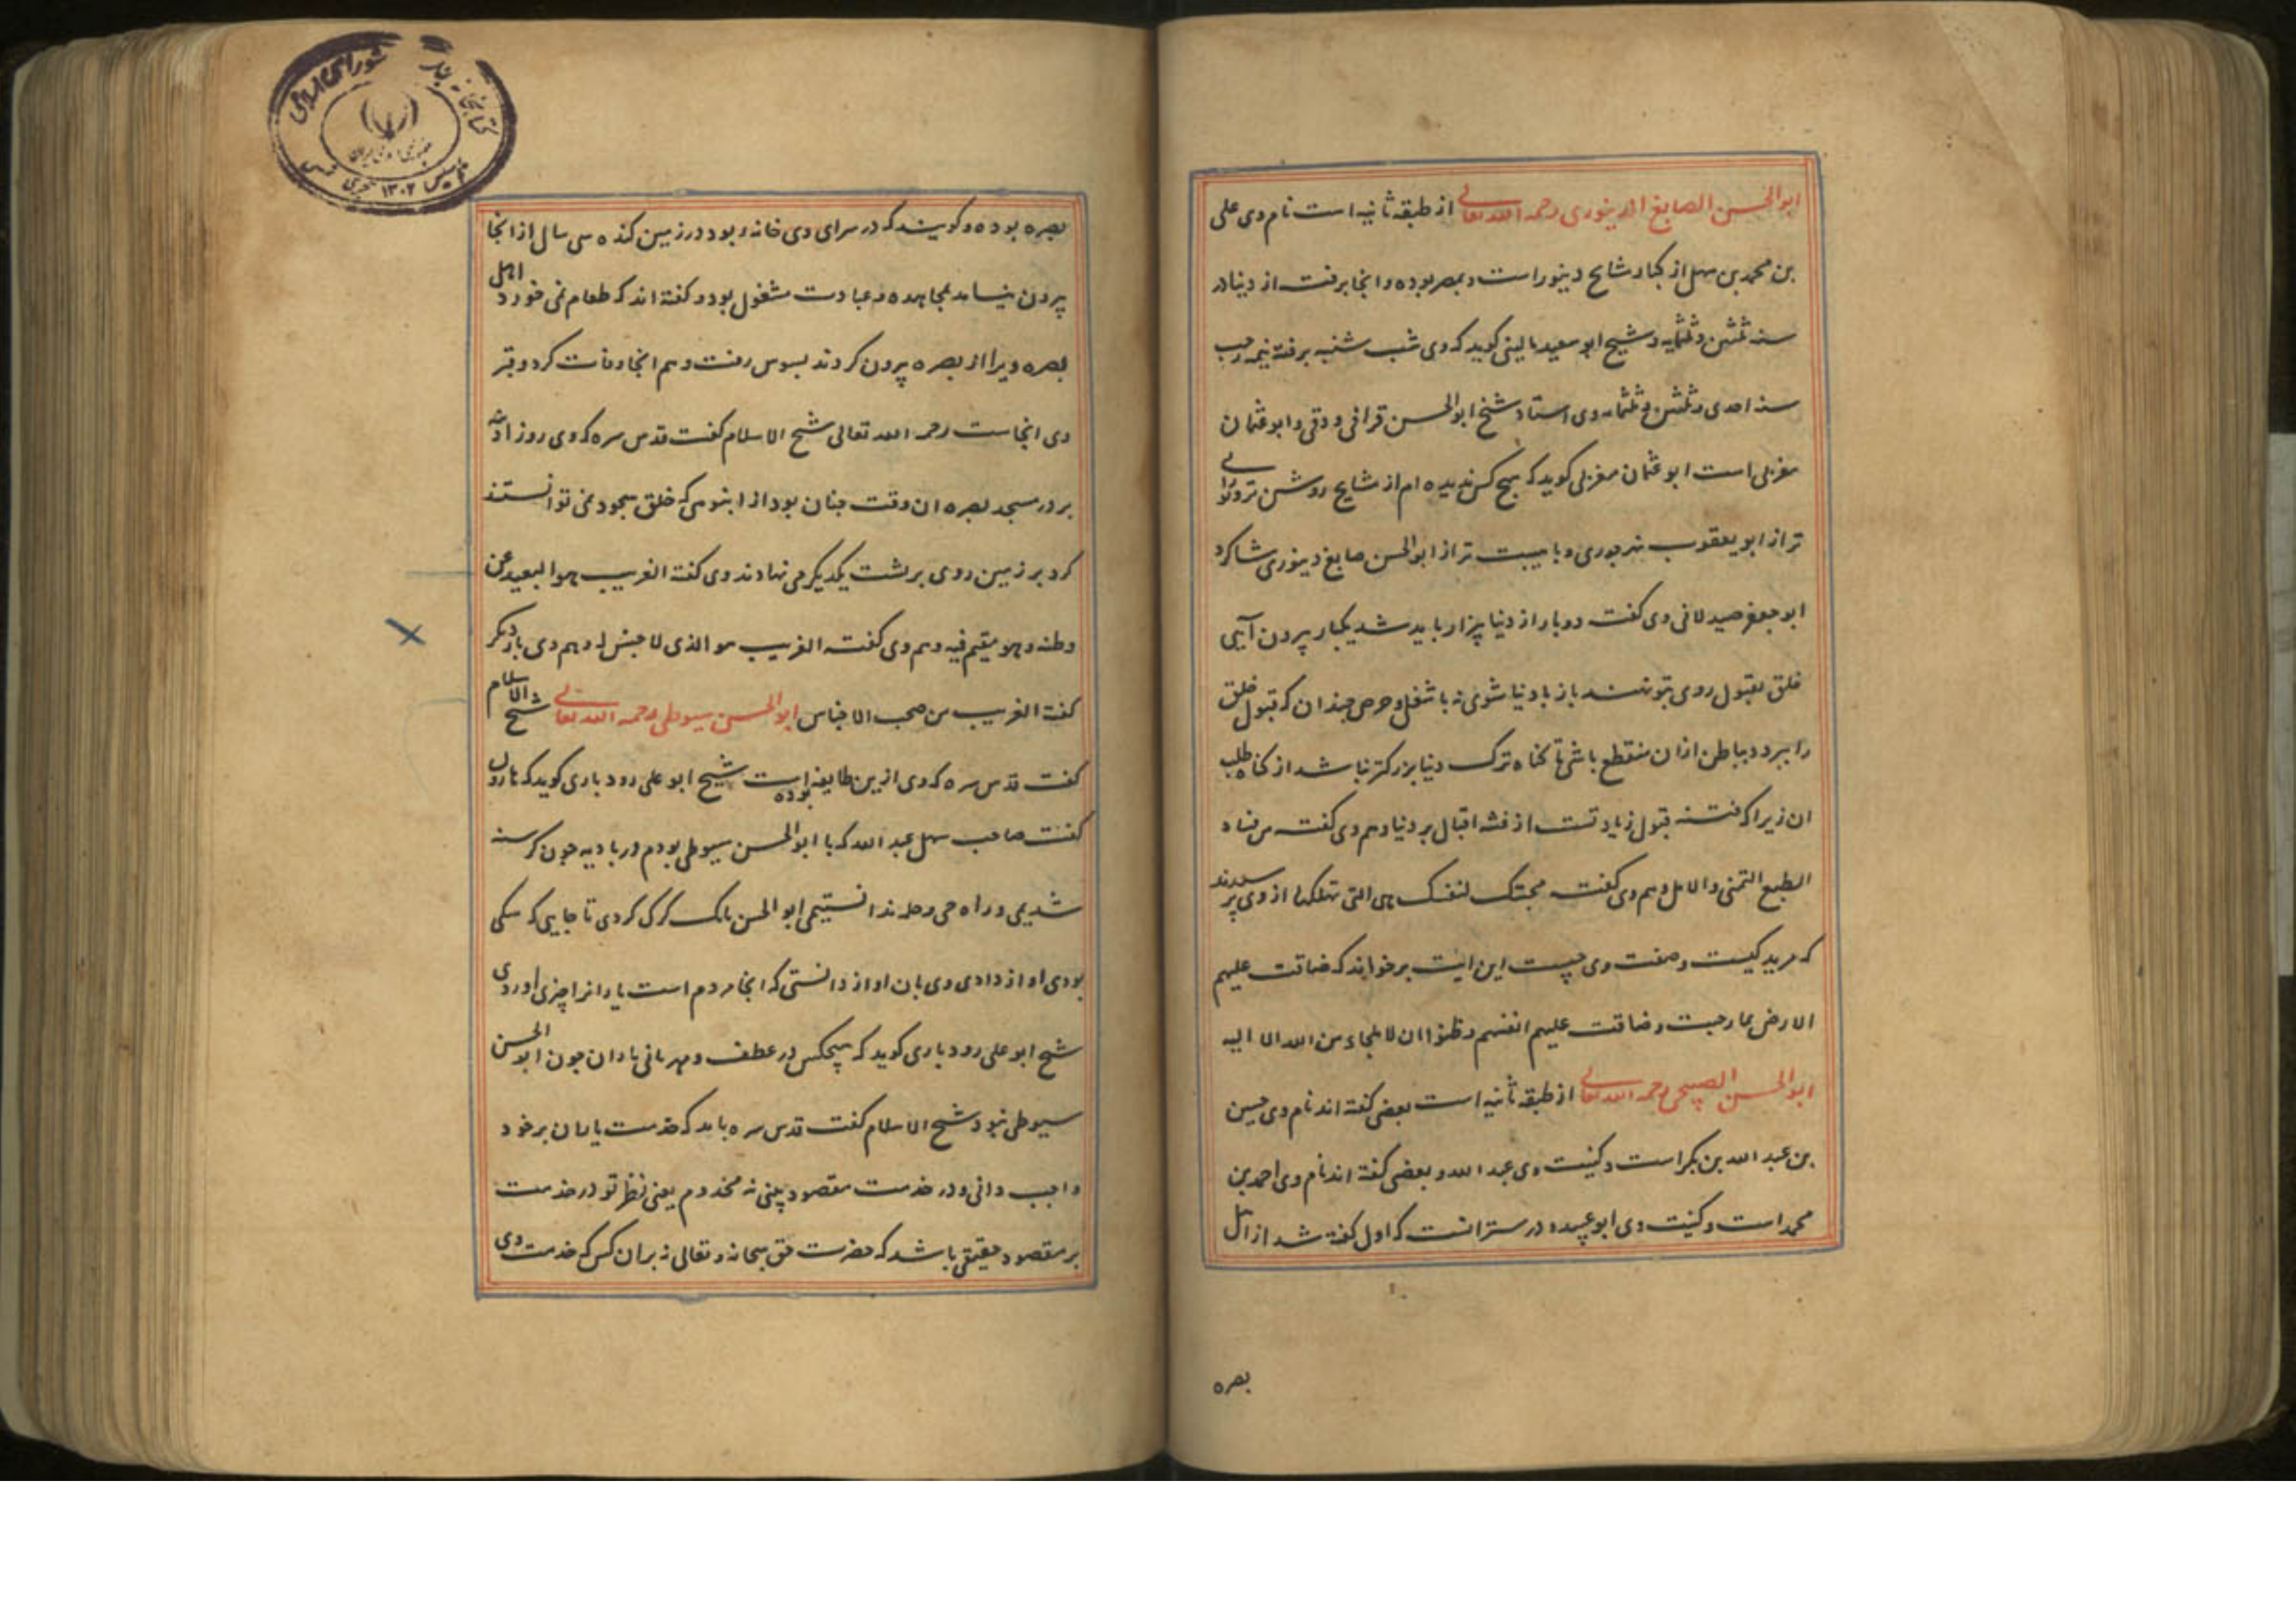 ابوالحسن الصایغ الدینوری رحمه الله تعالی از طبقه ثانیه است نام وی علی
بن محمد بن سهل از کبار مشایخ دینور است و بمصر بوده و انجا برفت از دنیا در
سنه ثلثین و ثلثمایه و شیخ ابو سعید مالینی کوید که وی شب شنبه برفته نیمه رجب
سنه احدی و ثلثین و ثلثمایه وی استاد شیخ ابوالحسن قرافی و دقی و ابو عثمان
مغربی است ابو عثمان مغربی کوید که هیچ کس ندیده ام از مشایخ روشن تر و نورانی
تر از ابو یعقوب نهرجوری و با هیبت تر از ابوالحسن صایغ دینوری شاکرد
ابو جعفر صیدلانی وی کفت دو بار از دنیا بیزار باید شد یکبار بیرون آیی
خلق بقبول روی بتو نهند باز با دنیا شوی نه با شغل و حرص چندان که قبول خلق
را ببرد و بباطن ازان منقطع باشی تا کناه ترک دنیا بزرکتر نباشد از کناه طلب
ان زیرا که فتنه قبول زیادتست از فتنه اقبال بر دنیا و هم وی کفت من فساد
الطبع التمنی والامل و هم وی کفت محبتک لنفسک هی التی تهلکها از وی پرسیدند
که مرید کیست و صفت وی چیست این ایت برخواند که ضاقت علیهم
الارض بما رحبت و ضاقت علیهم انفسهم و ظنوا ان لا ملجاء من الله الا الیه
ابوالحسن الصبیحی رحمه الله تعالی از طبقه ثانیه است بعضی کفته اند نام وی حسین
بن عبد الله بن بکر است و کنیت وی عبد الله و بعضی کفته اند نام وی احمد بن
محمد است و کنیت وی ابو عبیده و درست انست که اول کفته شد از اهل
بصره
بصره بوده و کویند که در سرای وی خانه بود در زمین کنده سی سال از انجا
بیرون نیامد بمجاهده و عبادت مشغول بود و کفته اند که طعام نمی خورد اهل
بصره ویرا از بصره بیرون کردند بسوس رفت و هم انجا وفات کرد و قبر
وی انجاست رحمه الله تعالی شیخ الاسلام کفت قدس سره که وی روز ادینه
بر در مسجد بصره ان وقت چنان بود از انبوهی که خلق سجود نمی توانستند
کرد بر زمین روی بر پشت یکدیکر می نهادند وی کفته الغریب هو البعید عن
وطنه و هو مقیم فیه و هم وی کفته الغریب هو الذی لا جنس له و هم وی باز دیکر
کفته الغریب من صحب الاجناس ابوالحسن سیوطی رحمه الله تعالی شیخ الاسلام
کفت قدس سره که وی ازین طایفه بوده است شیخ ابو علی رودباری کوید که
کفت صاحب سهل عبد الله که با ابوالحسن سیوطی بودم در بادیه چون کرسنه
شدیمی و راه حی و حله ندانستیمی ابوالحسن بانک کرک کردی تا جایی که سکی
بودی اواز دادی وی بان اواز دانستی که انجا مردم است یارانرا چیزی اوردی
شیخ ابو علی رودباری کوید که هیچکس در عطف و مهربانی یاران چون ابوالحسن
سیوطی نبود شیخ الاسلام کفت قدس سره باید که خدمت یاران بر خود
واجب دانی و در خدمت مقصود بینی نه مخدوم یعنی نظر تو در خدمت
بر مقصود حقیقی باشد که حضرت حق سبحانه و تعالی نه بران کس که خدمت وی
کتابخانه مجلس شورای اسلامی
تاسیس ۱۳۰۲